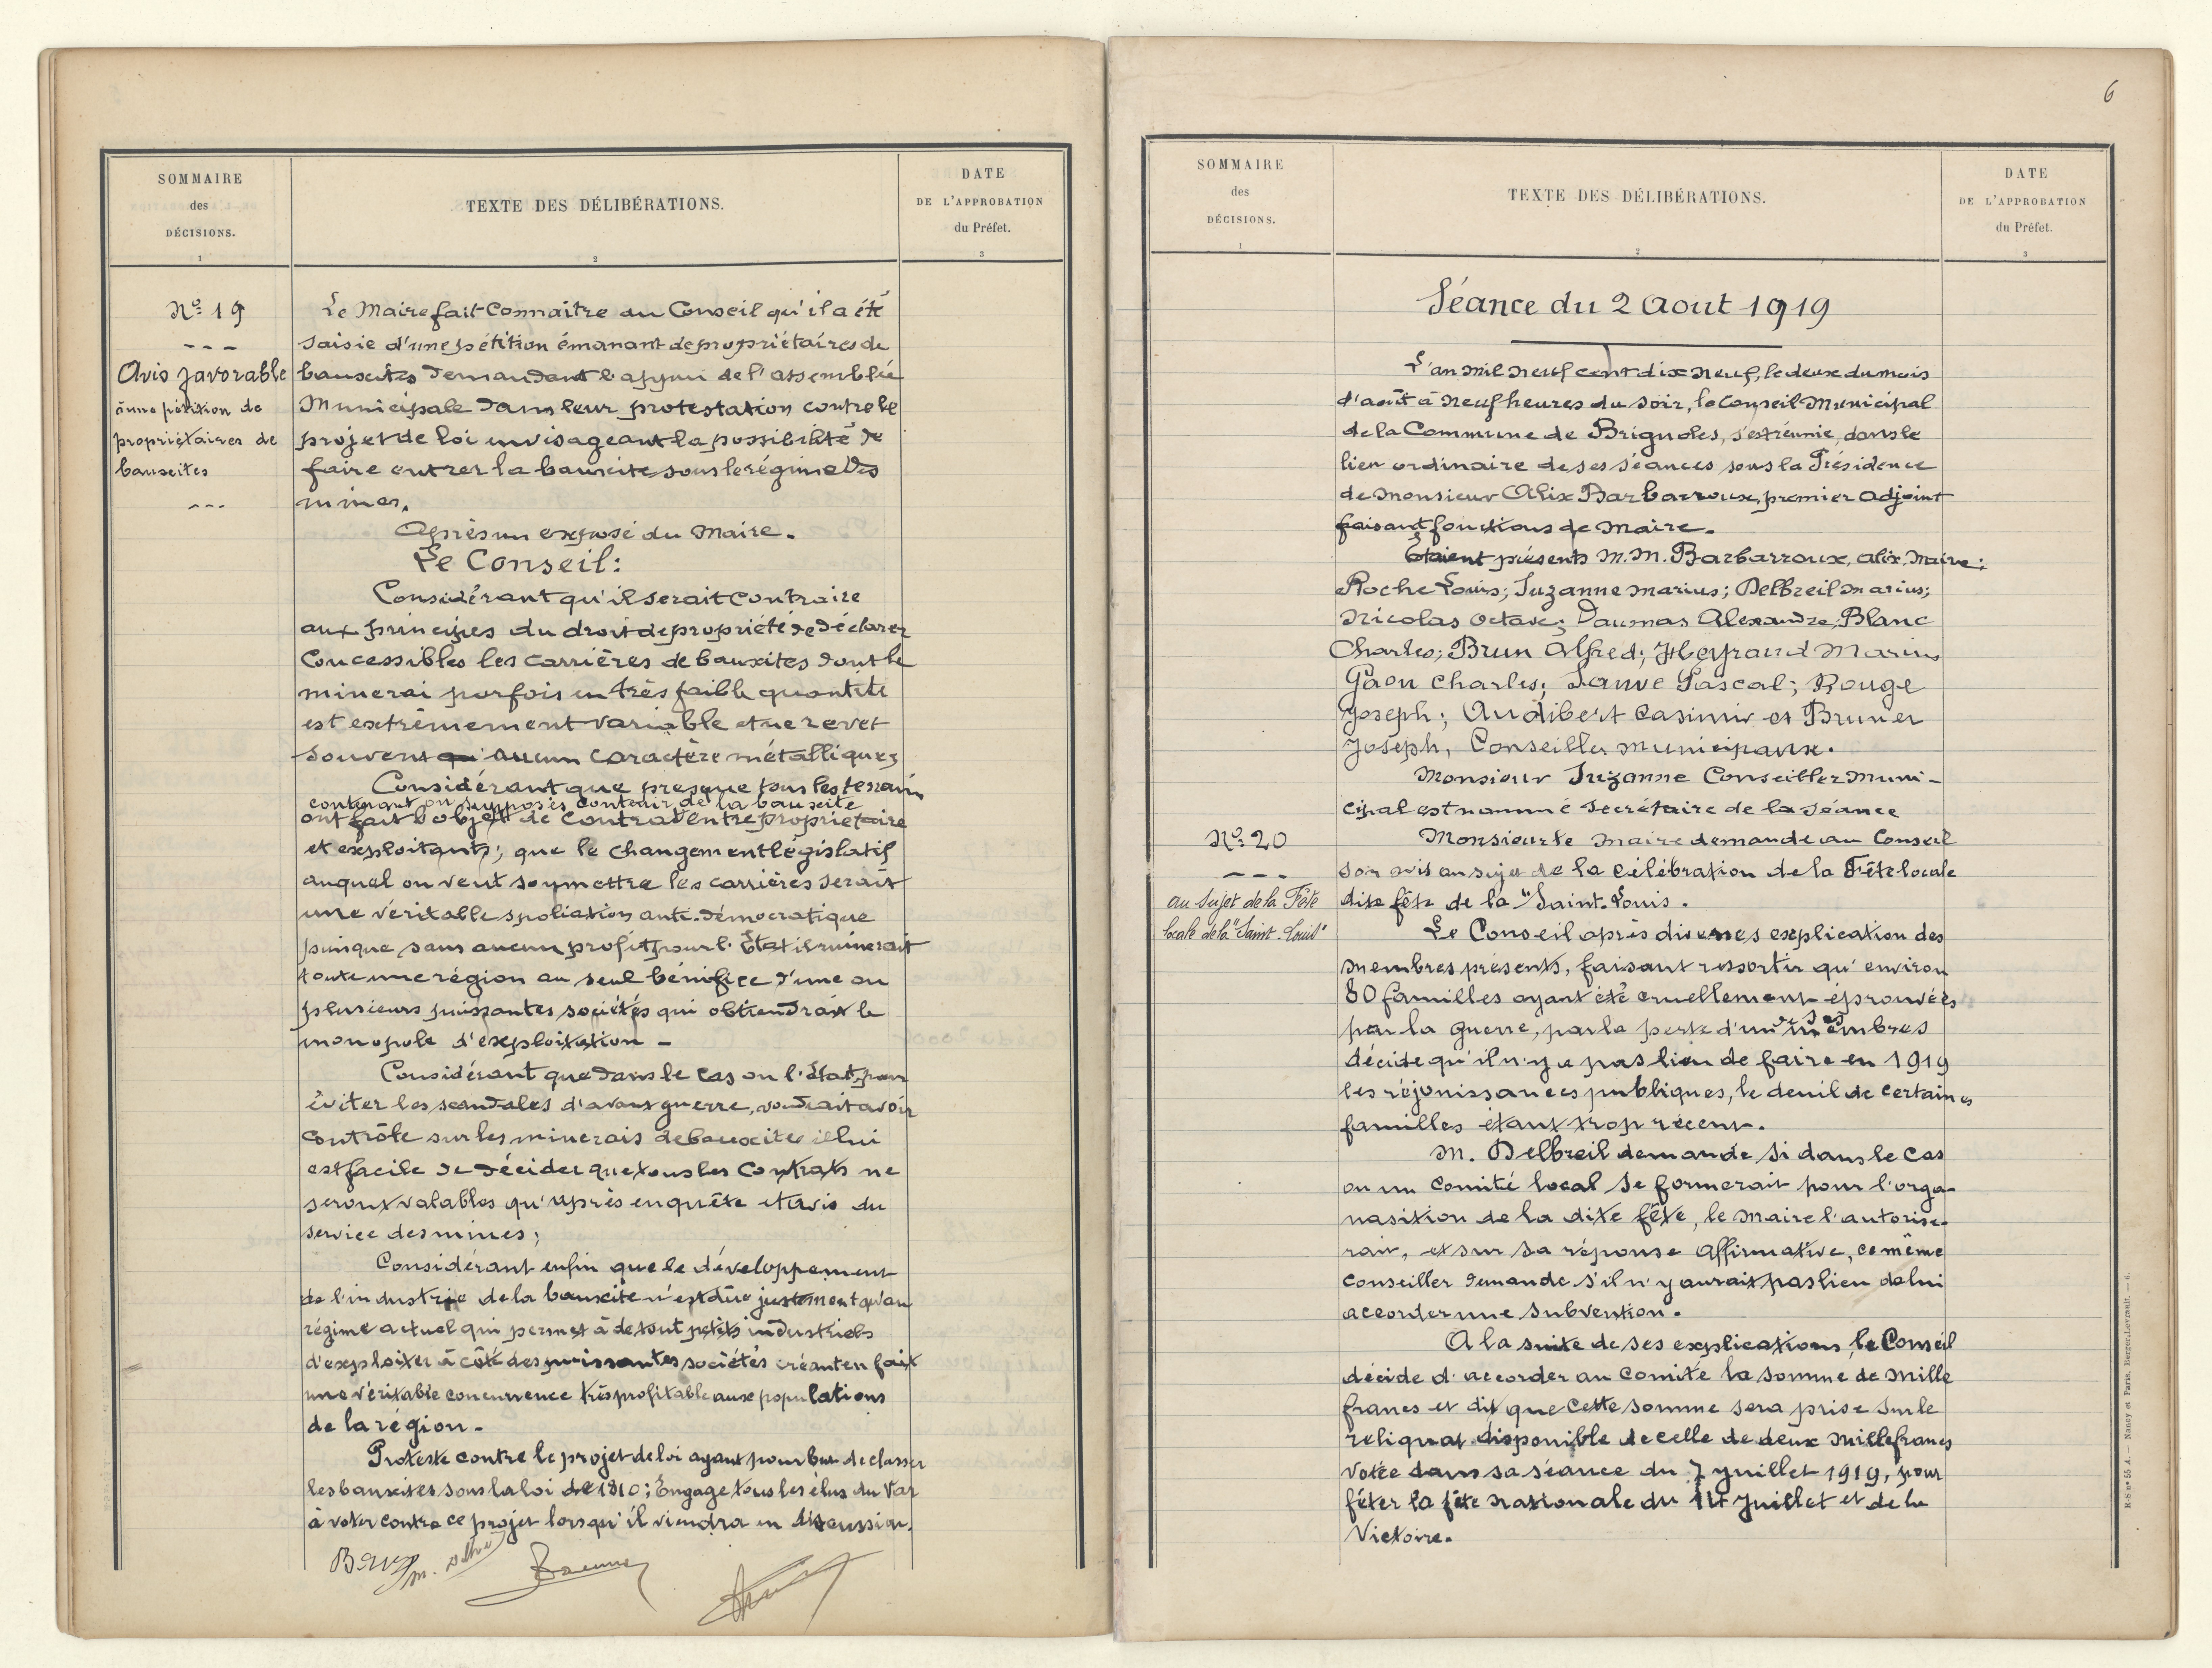 SOMMAIRE
des
DÉCISIONS.
1
TEXTE DES DÉLIBÉRATIONS.
2
DATE
DE L'APPROBATION
du Préfet.
3
Nº 19
---
Avis favorable
à une pétition de
propriétaires de
bauxites
---
Le Maire fait Connaître au Conseil qu'il a été
saisie d'une pétition émanant de propriétaires de
bauxites demandant l'appui de l'assemblée
Municipale dans leur protestation contre le
projet de loi envisageant la possibilité de
faire entrer la bauxite sous le régime des
mines.
Après un exposé du Maire.
Le Conseil:
Considérant qu'il serait contraire
aux principes du droit de propriété de déclarer
Concessibles les carrières de bauxites dont le
minerai parfois en très faible quantité
est extrêmement variable et ne revet
souvent aucun caractère métallique;
Considérant que presque tous les terrains
contenant ou supposés contenir de la bauxite
ont fait l'objet de Contrat entre propriétaire
et exploitants; que le changement législatif
auquel on veut soumettre les carrières serait
une véritable spoliation anti-démocratique
puisque sans aucun profit pour l'État il ruinerait
toute une région au seul bénéfice d'une ou
plusieurs puissantes sociétés qui obtiendrait le
monopole d'exploitation -
Considérant que dans le cas ou l'État, pour
éviter les scandales d'avant guerre, voudrait avoir
contrôle sur les minerais de bauxites il lui
est facile de décider que tous les Contrats ne
seront valables qu'après enquête et avis du
service des mines;
Considérant enfin que le développement
de l'industrie de la bauxite n'est dûe justement qu'au
régime actuel qui permet à de tout petits industriels
d'exploiter à côté des puissantes sociétés créant en fait
une véritable concurrence très profitable aux populations
de la région -
Proteste contre le projet de loi ayant pour but de classer
les bauxites sous la loi de 1810; Engage tous les élus du Var
à voter contre ce projet lorsqu'il viendra en discussion.
6
SOMMAIRE
des
DÉCISIONS.
1
TEXTE DES DÉLIBÉRATIONS.
2
DATE
DE L'APPROBATION
du Préfet.
3
Séance du 2 Aout 1919
L'an mil neuf cent dix neuf, le deux du mois
d'août à neuf heures du soir, le Conseil Municipal
de la Commune de Brignoles, s'est réunie, dans le
lieu ordinaire de ses séances sous la Présidence
de Monsieur Alix Barbarroux, premier Adjoint
faisant fonctions de Maire.
Étaient présents M.M. Barbarroux, Alix, Maire;
Roche Louis; Suzanne Marius; Delbreil Marius;
Nicolas Octave; Daumas Alexandre; Blanc
Charles; Brun Alfred; Heyraud Marius
Gaou Charles; Sauve Pascal; Rouge
Joseph; Audibert Casimir et Brunet
Joseph, Conseillers municipaux.
Monsieur Suzanne Conseiller Muni-
cipal est nommé secrétaire de la séance
Nº 20
---
au sujet de la Fête
locale de la "Saint-Louis"
Monsieur le Maire demande au Conseil
son avis au sujet de la célébration de la Fête locale
dite fête de la "Saint-Louis.
Le Conseil après diverses explication des
membres présents, faisant ressortir qu'environ
80 familles ayant été cruellement éprouvées
par la guerre, par la perte d'un de ses membres
décide qu'il n'y a pas lieu de faire en 1919
les réjouissances publiques, le deuil de certaines
familles étant trop récent.
M. Delbreil demande si dans le cas
ou un comité local se formerait pour l'orga-
nasition de la dite fête, le Maire l'autorise-
rait, et sur sa réponse affirmative, ce même
conseiller demande s'il n'y aurait pas lieu de lui
accorder une subvention.
A la suite de ses explications, le Conseil
décide d'accorder au Comité la somme de Mille
francs et dit que cette somme sera prise sur le
reliquat disponible de celle de deux mille francs
votée dans sa séance du 7 Juillet 1919, pour
fêter la fête nationale du 14 Juillet et de la
Victoire.
H.S. nº 55 A. — Nancy et Paris, Berger-Levrault. — 6.